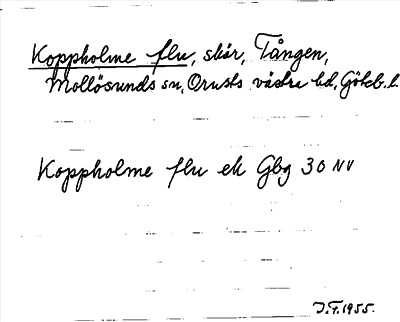 Koppholme flu, skär, Tången,
Mollösunds sn, Orusts västra hd, Göteb. l.
Koppholme flu ek Gbg 30 NV
J.F. 1955.